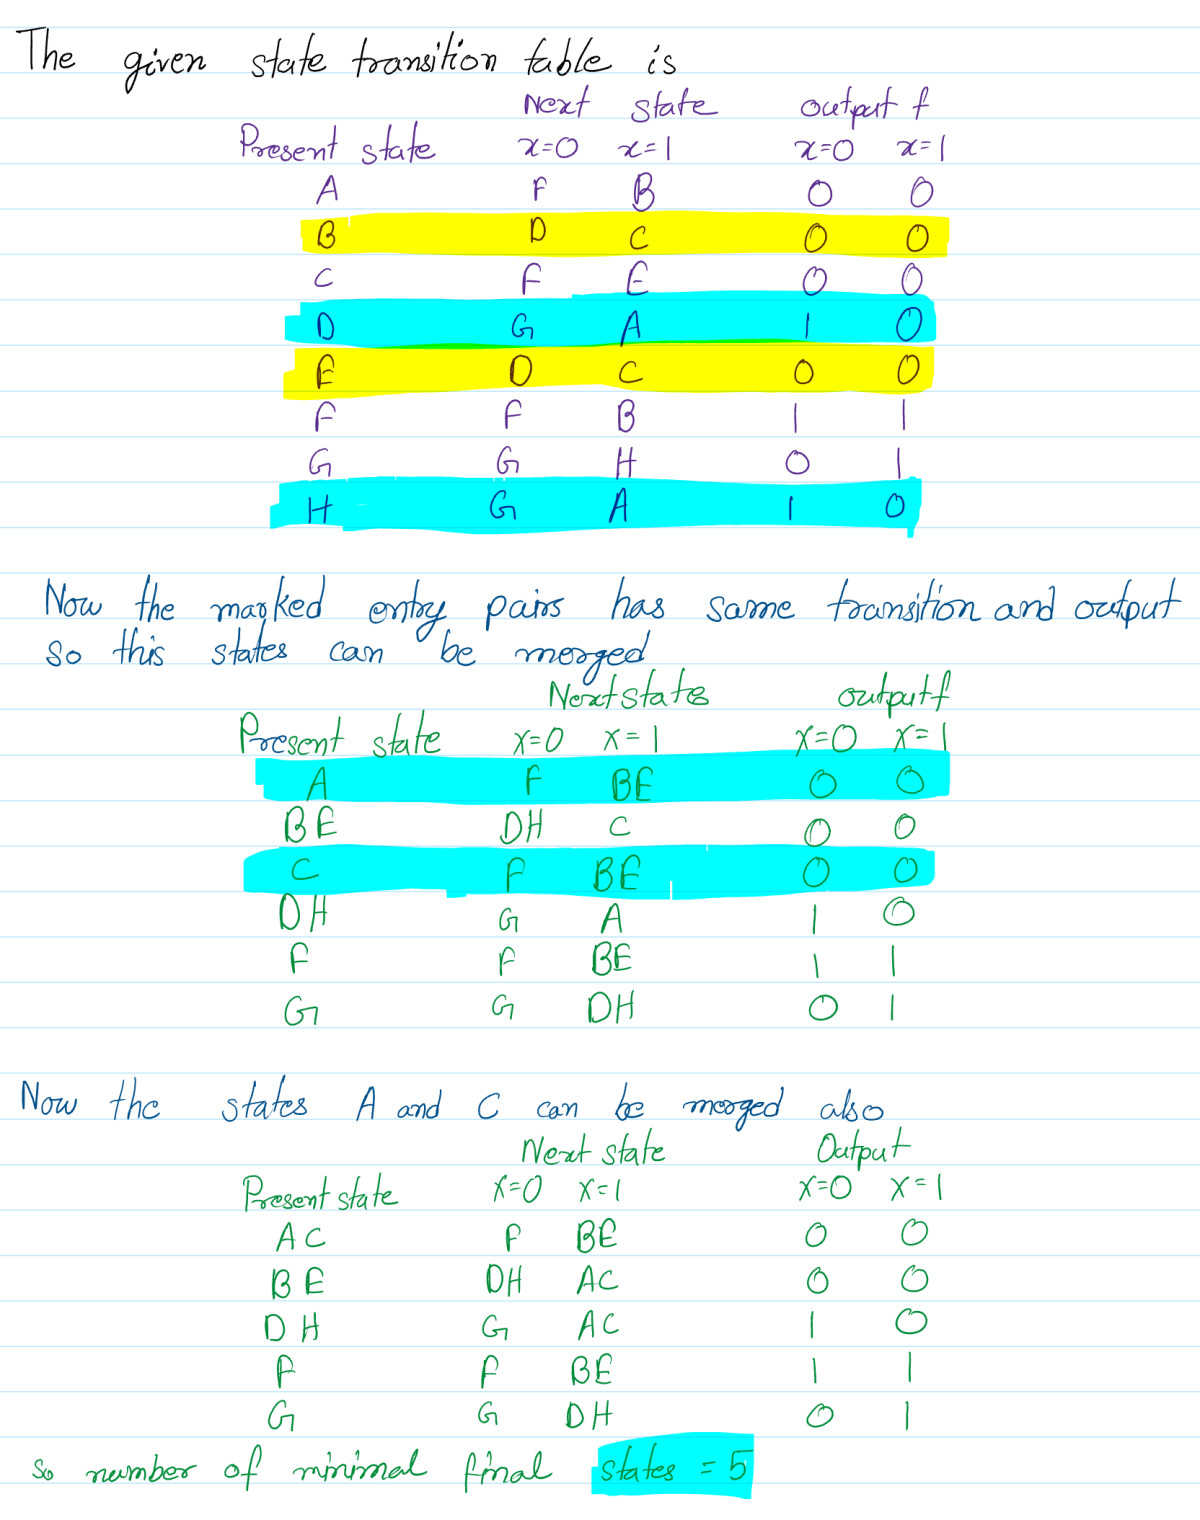 The given state transition table is
Next state output f
Present state x=0 x=1 x=0 x=1
A F B 0 0
B D C 0 0
C F E 0 0
D G A 1 0
E D C 0 0
F F B 1 1
G G H 0 1
H G A 1 0
Now the marked entry pairs has same transition and output
so this states can be merged
Next state output f
Present state x=0 x=1 x=0 x=1
A F BE 0 0
BE DH C 0 0
C F BE 0 0
DH G A 1 0
F F BE 1 1
G G DH 0 1
Now the states A and C can be merged also
Next state Output
Present state x=0 x=1 x=0 x=1
AC F BE 0 0
BE DH AC 0 0
DH G AC 1 0
F F BE 1 1
G G DH 0 1
So number of minimal final states = 5